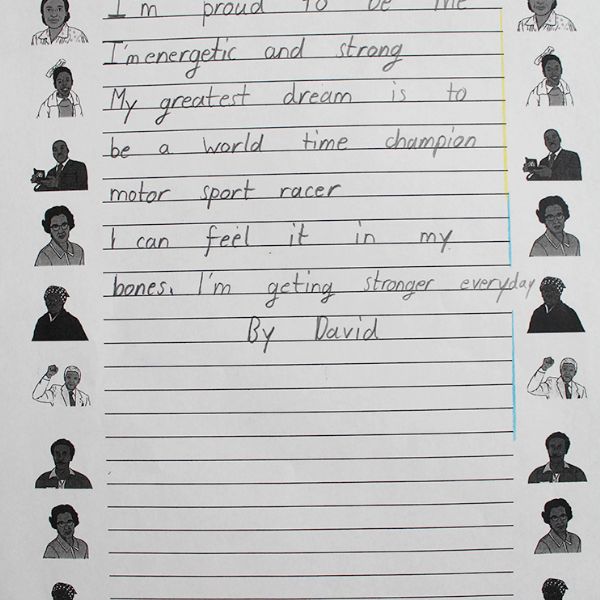 I'm proud to be me
I'm energetic and strong
My greatest dream is to
be a world time champion
motor sport racer
I can feel it in my
bones. I'm geting stronger everyday
By David